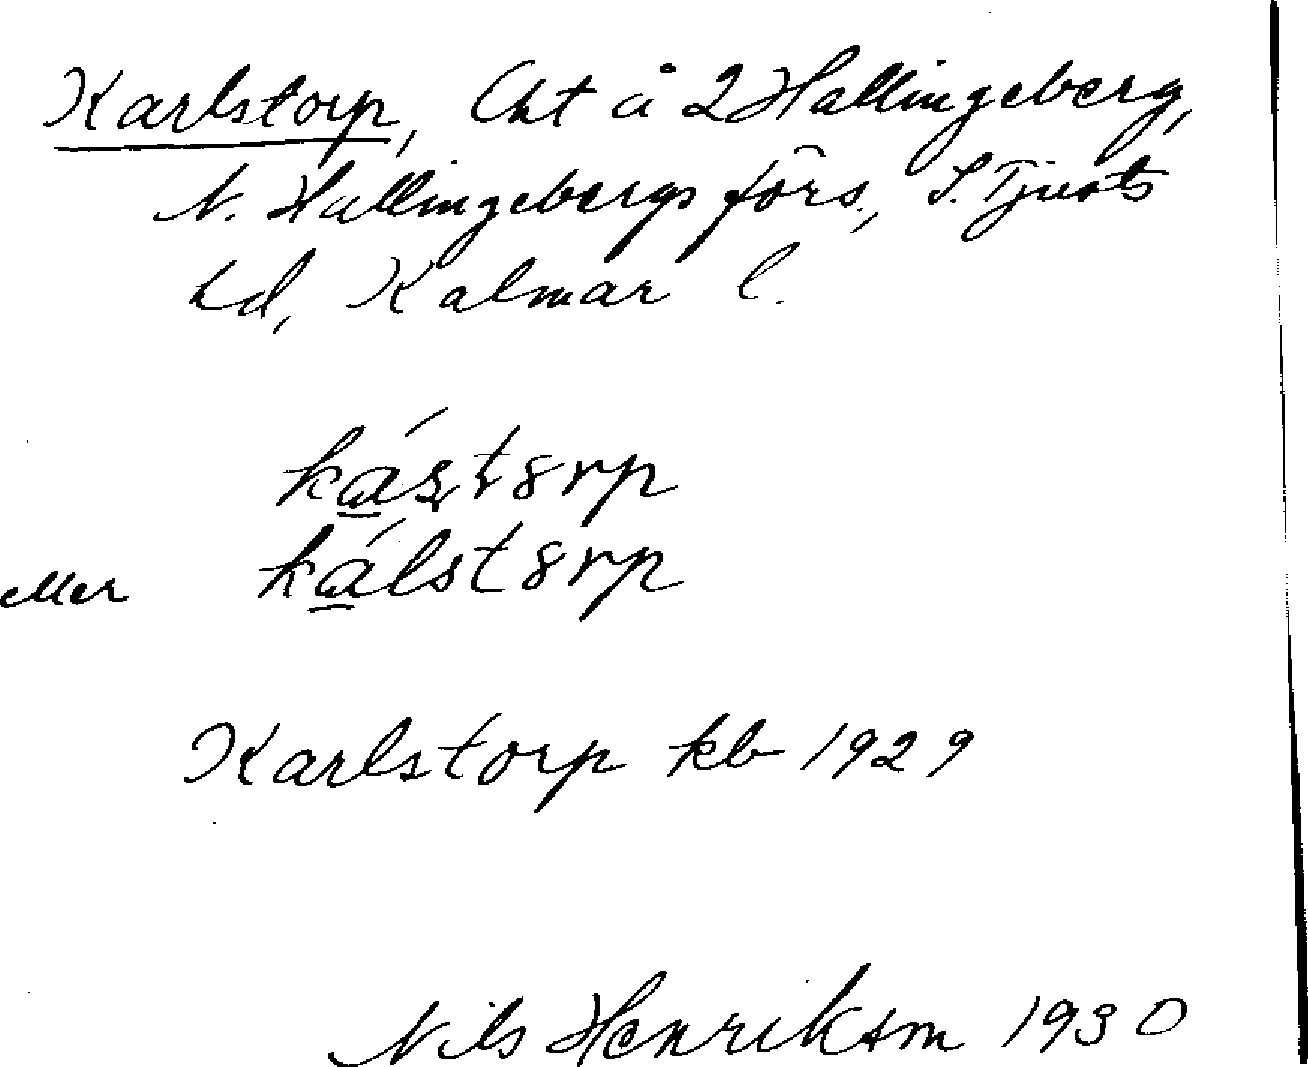 Karlstorp, lht å 2 Hallingeberg,
N. Hallingebergs förs., S. Tjusts
hd, Kalmar l.
ká̱ştȣrp
eller ká̱lstȣrp
Karlstorp kb 1929
Nils Henrikson 1930